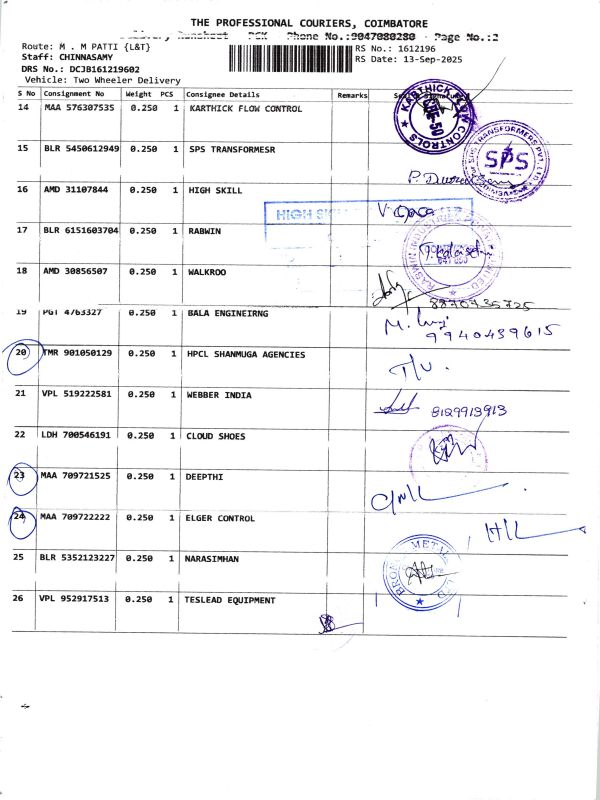 THE PROFESSIONAL COURIERS, COIMBATORE
Delivery Runsheet - PCK - Phone No.:9047080280 - Page No.:2
Route: M . M PATTI {L&T}
RS No.: 1612196
Staff: CHINNASAMY
RS Date: 13-Sep-2025
DRS No.: DCJB161219602
Vehicle: Two Wheeler Delivery
S No Consignment No Weight PCS Consignee Details Remarks
14 MAA 576307535 0.250 1 KARTHICK FLOW CONTROL
KARTHICK FLOW CONTROLS
15 BLR 5450612949 0.250 1 SPS TRANSFORMESR
SPS
16 AMD 31107844 0.250 1 HIGH SKILL
17 BLR 6151603704 0.250 1 RABWIN
18 AMD 30856507 0.250 1 WALKROO
8870735725
19 PGT 4763327 0.250 1 BALA ENGINEIRNG
9940439615
20 TMR 901050129 0.250 1 HPCL SHANMUGA AGENCIES
21 VPL 519222581 0.250 1 WEBBER INDIA
8129913913
22 LDH 700546191 0.250 1 CLOUD SHOES
23 MAA 709721525 0.250 1 DEEPTHI
24 MAA 709722222 0.250 1 ELGER CONTROL
25 BLR 5352123227 0.250 1 NARASIMHAN
26 VPL 952917513 0.250 1 TESLEAD EQUIPMENT